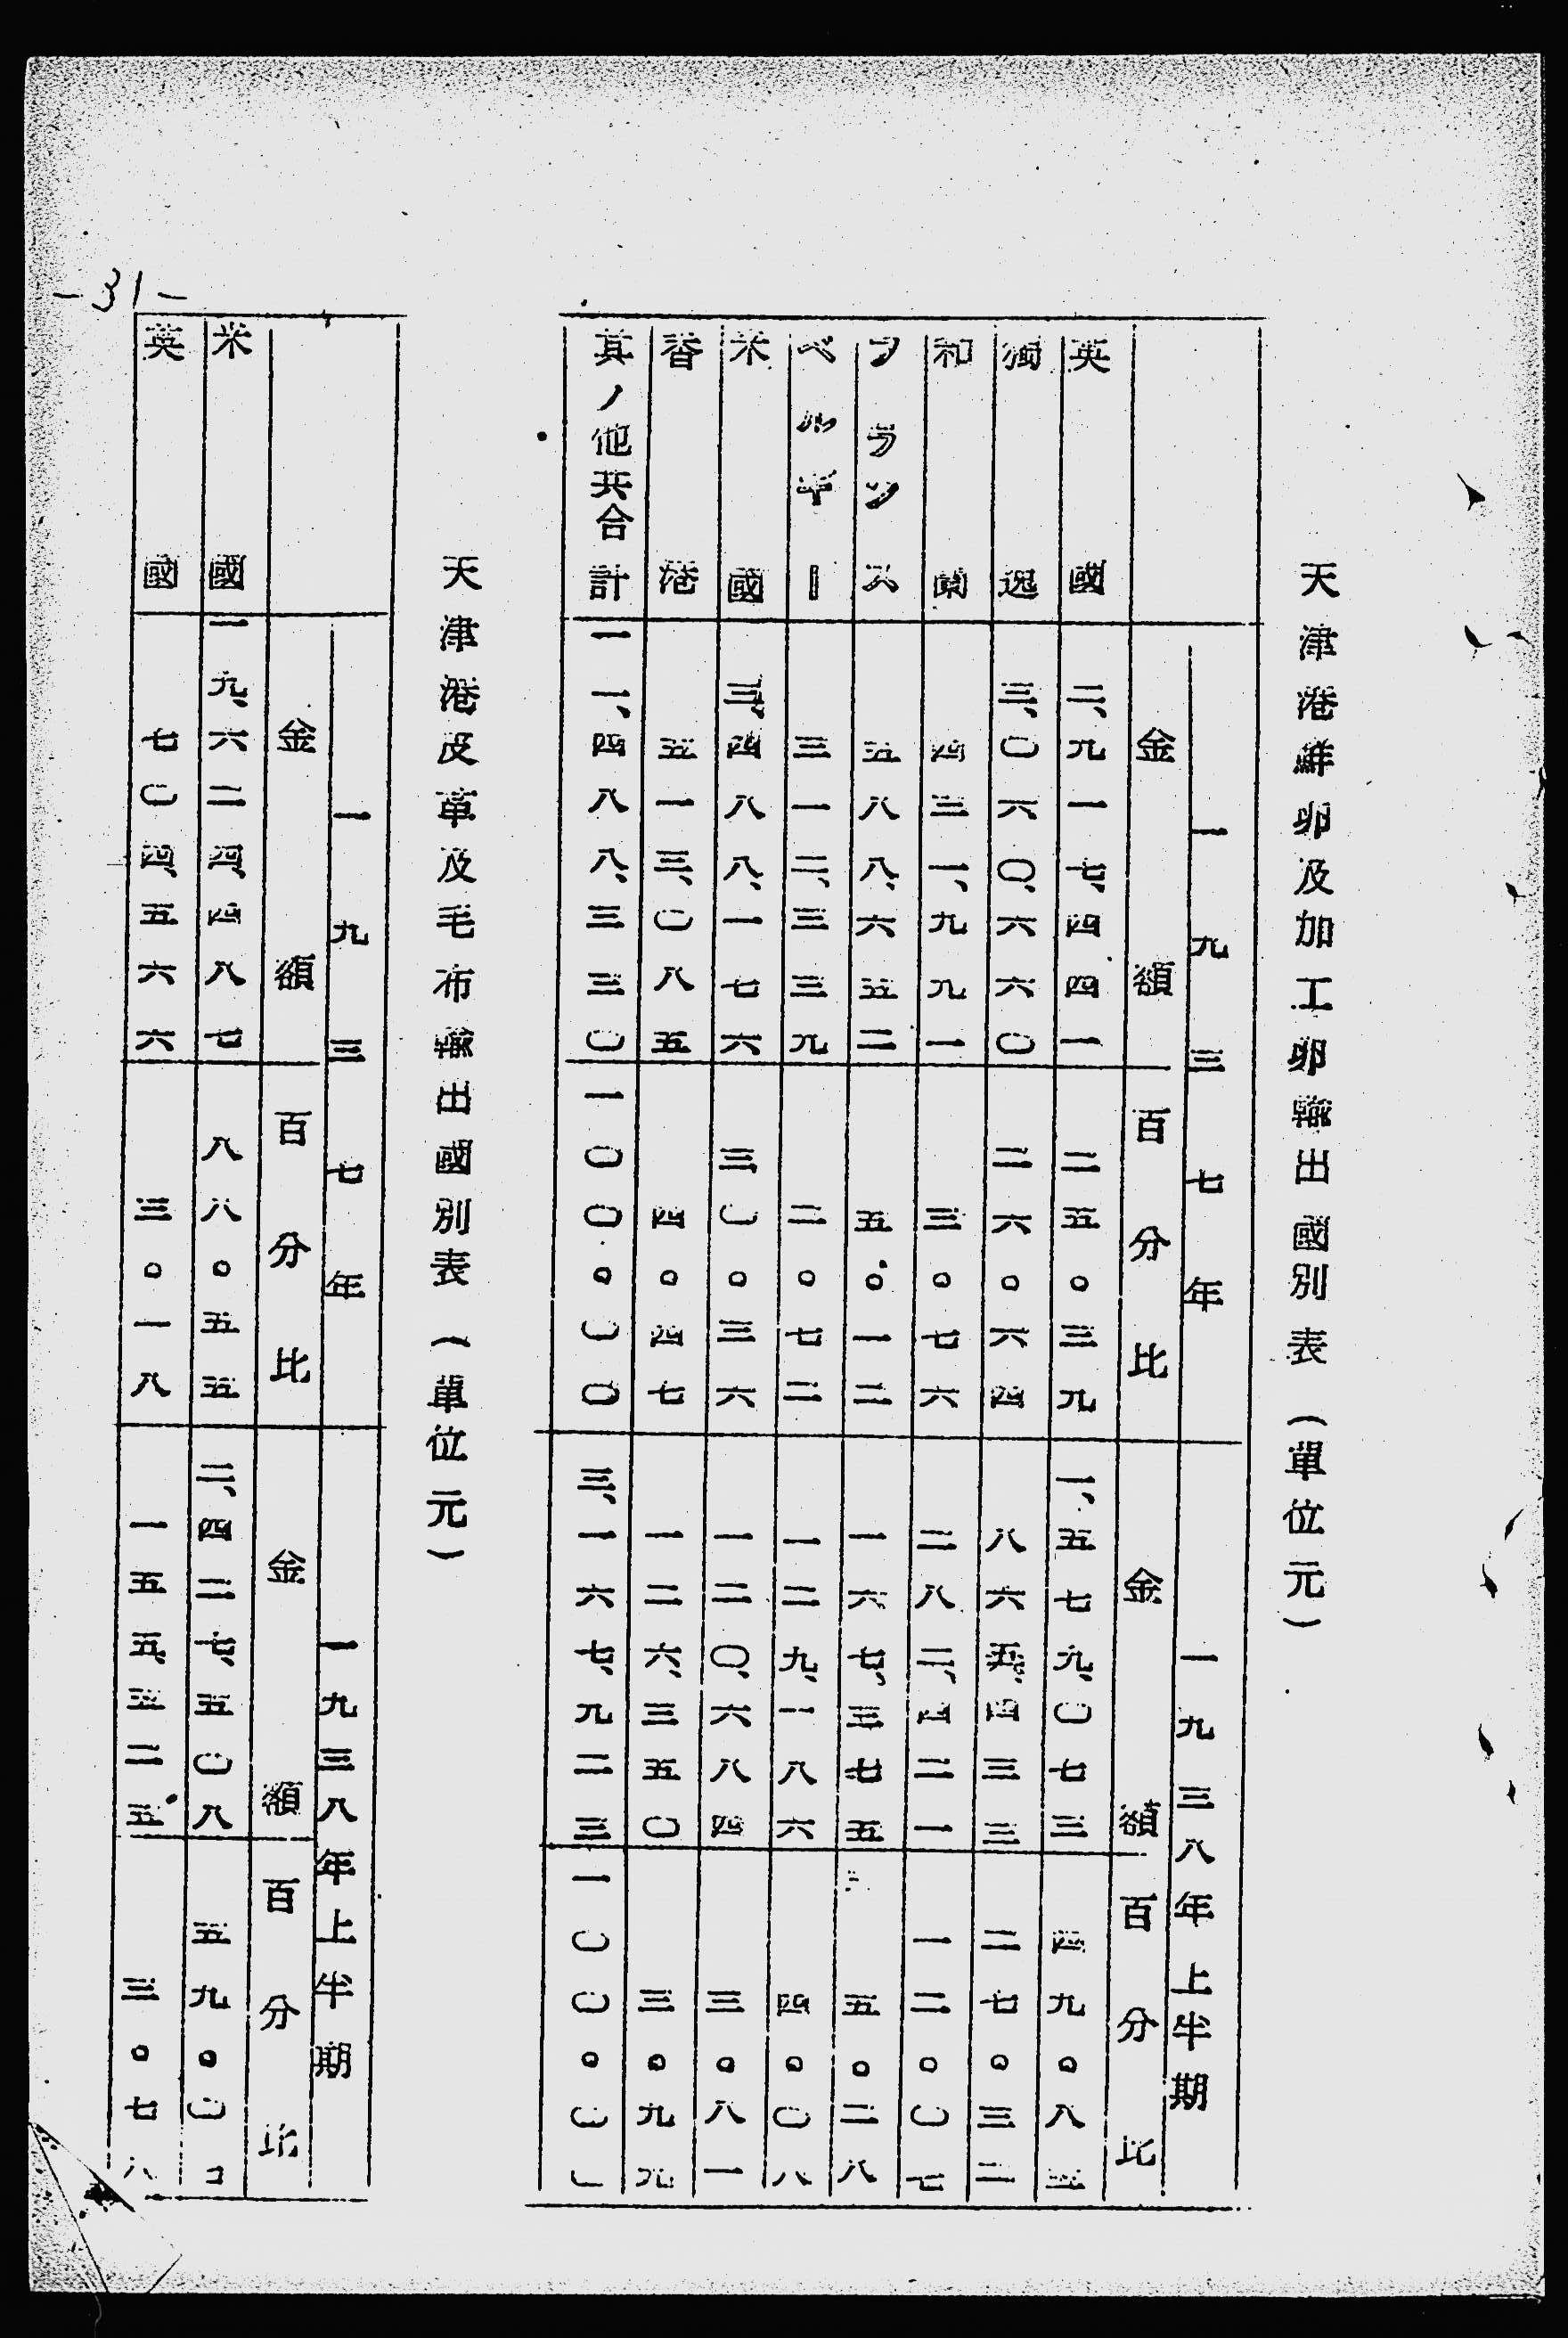 天津港鮮卵及加工卵輸出國別表(單位元)
一九三七年 一九三八年上半期
金額 百分比 金額 百分比
英國 二、九一七、四四一 二五。三九 一、五七九、〇七三 四九。八五
獨逸 三、〇六〇、六六〇 二六。六四 八六五、四三三 二七。三二
和蘭 四三一、九九一 三。七六 二八二、四二一 一二。〇七
フランス 五八八、六五二 五。一二 一六七、三七五 五。二八
ベルギー 三一二、三三九 二。七二 一二九、一八六 四。〇八
米國 三、四八八、一七六 三〇。三六 一二〇、六八四 三。八一
香港 五一三、〇八五 四。四七 一二六、三五〇 三。九九
其ノ他共合計 一一、四八八、三三〇 一〇〇。〇〇 三、一六七、九二三 一〇〇。〇〇
天津港皮革及毛布輸出國別表(單位元)
一九三七年 一九三八年上半期
金額 百分比 金額 百分比
米國 一九、六二四、四八七 八八。五五 二、四二七、五〇八 五九。〇
英國 七〇四、五六六 三。一八 一五五、五二五 三。七八
-31-